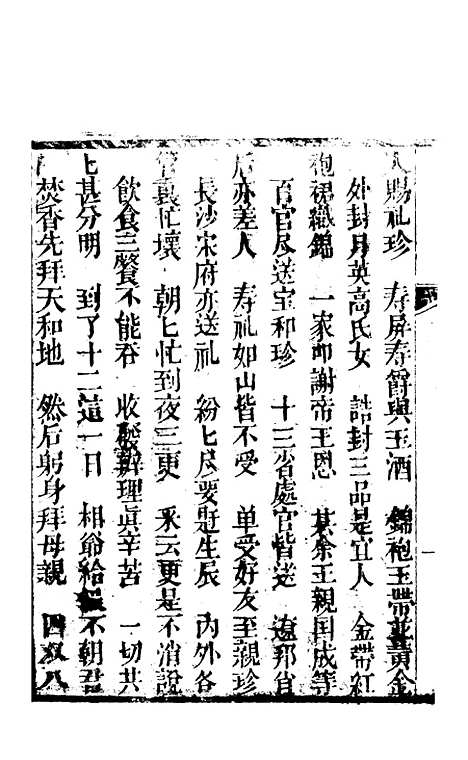 賜礼珍　寿屏寿爵與玉酒　錦袍玉帶並黃金
外封月英高氏女　誥封三品是宜人　金帶紅
袍裙織錦　一家叩謝帝王恩　某余王親国戚等
百官尽送宝和珍　十三省處官皆送　遠邦省
后亦差人　寿礼如山皆不受　单受好友至親珍
長沙宋府亦送礼　紛匕尽要赶生辰　內外各
管裏忙壞　朝匕忙到夜三更　釆云更是不消說
飲食三餐不能吞　收殮辨理真辛苦　一切共
匕甚分明　到了十二這一日　相爺給假不朝君
焚香先拜天和地　然后躬身拜母親　四双八